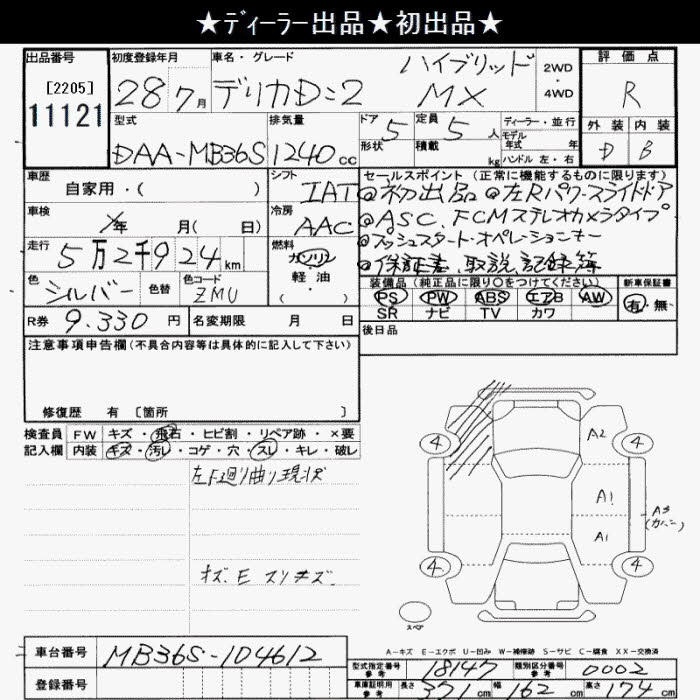 ★ディーラー出品★初出品★
出品番号 [2205] 11121
初度登録年月 28 7月
車名・グレード デリカD:2 ハイブリッド MX
2WD・4WD
評価点 R
外装 D 内装 B
型式 DAA-MB36S
排気量 1240cc
ドア 5 形状
定員 5人 積載 kg
ディーラー・並行
モデル年式 年
ハンドル 左・右
車歴 自家用・( )
シフト IAT
車検 年 月( 日)
冷房 AAC
走行 5万2千924km
燃料 ガソリン 軽・油 ( ・ )
色 シルバー 色替 色コード ZMU
R券 9.330円 名変期限 月 日
セールスポイント(正常に機能するものに限ります)
◎初出品 ◎左Rパワースライドドア
◎ASC、FCMステレオカメラタイプ
◎プッシュスタート・オペレーションキー
◎保証書、取説、記録簿
装備品(純正品に限り○をつけてください) 新車保証書
PS PW ABS エアB AW 有・無
SR ナビ TV カワ
後日品
注意事項申告欄(不具合内容等は具体的に記入して下さい)
修復歴 有 〔箇所 〕
検査員 FW キズ・飛石・ヒビ割・リペア跡・×要
記入欄 内装 キズ・汚レ・コゲ・穴・スレ・キレ・破レ
左F廻り曲り現状
キズ、E スリキズ
4 A2 4
A1
A1
A3 (カバー)
4 4
スペア
A-キズ E-エクボ U-凹み W-補修跡 S-サビ C-腐食 XX-交換済
車台番号 MB36S-104612
登録番号
型式指定番号 参考 18147 類別区分番号 参考 0002
車庫証明用 参考 長さ 371cm 幅 162cm 高さ 174cm